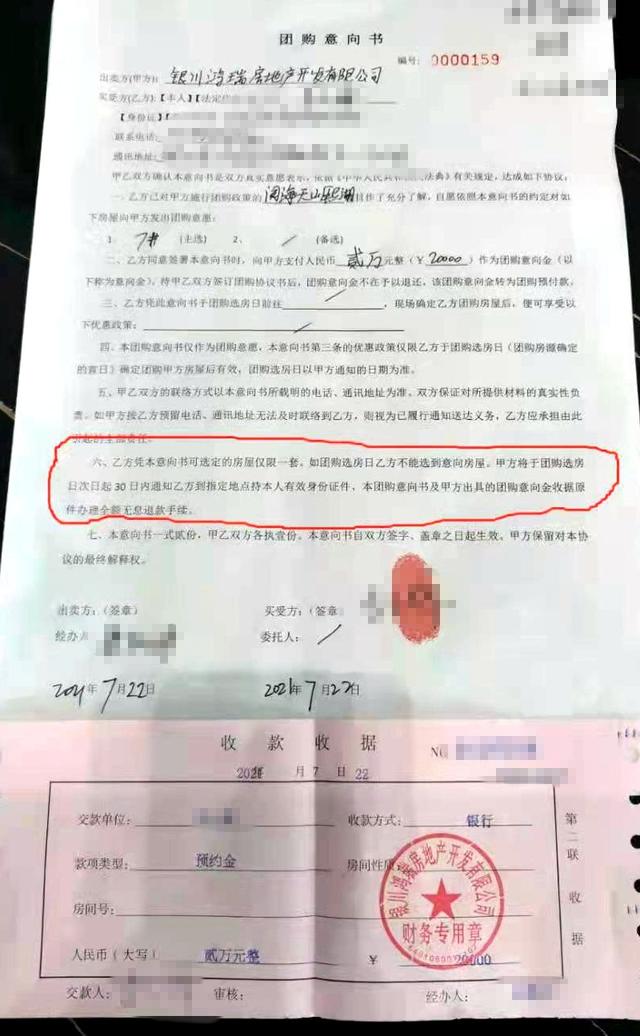 团购意向书
编号：0000159
出卖方(甲方)：银川鸿瑞房地产开发有限公司
买受方(乙方)：【本人】【法定代
【身份证】
联系电话：
通讯地址：
甲乙双方确认本意向书是双方真实意愿表示，依据《中华人民共和 法典》有关规定，达成如下协议：
一、乙方已对甲方施行团购政策的 阅海天山熙湖 项目作了充分了解，自愿依照本意向书的约定对如
下房屋向甲方发出团购意愿：
1、7# （主选） 2、 / （备选）
二、乙方同意签署本意向书时，向甲方支付人民币 贰万 元整（¥ 20000 ）作为团购意向金（以
下称为意向金），待甲乙双方签订团购协议书后，团购意向金不在予以退还，该团购意向金转为团购预付款。
三、乙方凭此意向书于团购选房日前往 / ，现场确定乙方团购房屋后，便可享受以
下优惠政策： /
四、本团购意向书仅作为团购意愿，本意向书第三条的优惠政策仅限乙方于团购选房日（团购房源确定
的首日）确定团购甲方房屋后有效，团购选房日以甲方通知的日期为准。
五、甲乙双方的联络方式以本意向书所载明的电话、通讯地址为准。双方保证对所提供材料的真实性负
责。如甲方按乙方预留电话、通讯地址无法及时联络到乙方，则视为已履行通知送达义务，乙方应承担由此
引起的全部责任。
六、乙方凭本意向书可选定的房屋仅限一套。如团购选房日乙方不能选到意向房屋。甲方将于团购选房
日次日起 30 日内通知乙方到指定地点持本人有效身份证件、本团购意向书及甲方出具的团购意向金收据原
件办理全额无息退款手续。
七、本意向书一式贰份，甲乙双方各执壹份。本意向书自双方签字、盖章之日起生效。甲方保留对本协
议的最终解释权。
出卖方：（签章） 买受方：（签章）
经办 委托人： /
2021年7月22日 2021年7月22日
收款收据 NO
2021 月 7 日 22
交款单位： 收款方式： 银行
款项类型： 预约金 房间性质：
房间号：
人民币（大写） 贰万元整 ¥ 20000
交款人： 审核： 经办人：
第二联 收据
银川鸿瑞房地产开发有限公司
财务专用章